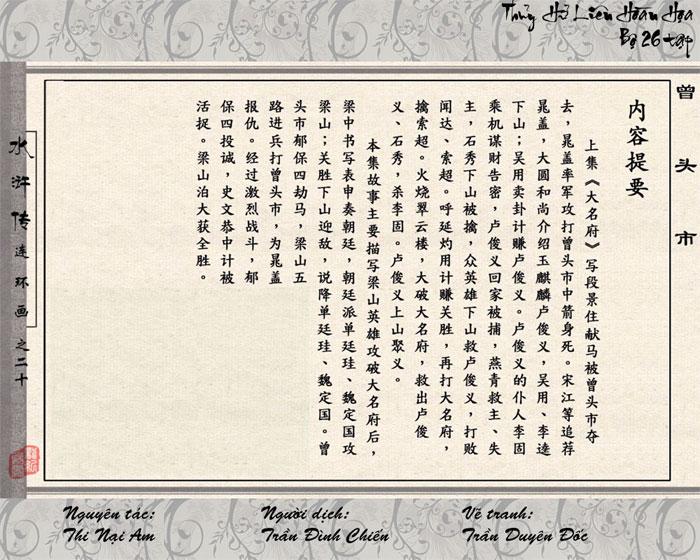 Thủy Hử Liên Hoàn Họa
Bộ 26 tập
曾头市
内容提要
上集《大名府》写段景住献马被曾头市夺
去，晁盖率军攻打曾头市中箭身死。宋江等追荐
晁盖，大圆和尚介绍玉麒麟卢俊义，吴用、李逵
下山；吴用卖卦计赚卢俊义。卢俊义的仆人李固
乘机谋财告密，卢俊义回家被捕，燕青救主、失
主，石秀下山被擒，众英雄下山救卢俊义，打败
闻达、索超。呼延灼用计赚关胜，再打大名府，
擒索超。火烧翠云楼，大破大名府，救出卢俊
义、石秀，杀李固。卢俊义上山聚义。
本集故事主要描写梁山英雄攻破大名府后，
梁中书写表申奏朝廷，朝廷派单廷珪、魏定国攻
梁山；关胜下山迎敌，说降单廷珪、魏定国。曾
头市郁保四劫马，梁山五
路进兵打曾头市，为晁盖
报仇。经过激烈战斗，郁
保四投诚，史文恭中计被
活捉。梁山泊大获全胜。
水浒传连环画之二十
Nguyên tác:
Thi Nại Am
Người dịch:
Trần Đình Chiến
Vẽ tranh:
Trần Duyên Đốc